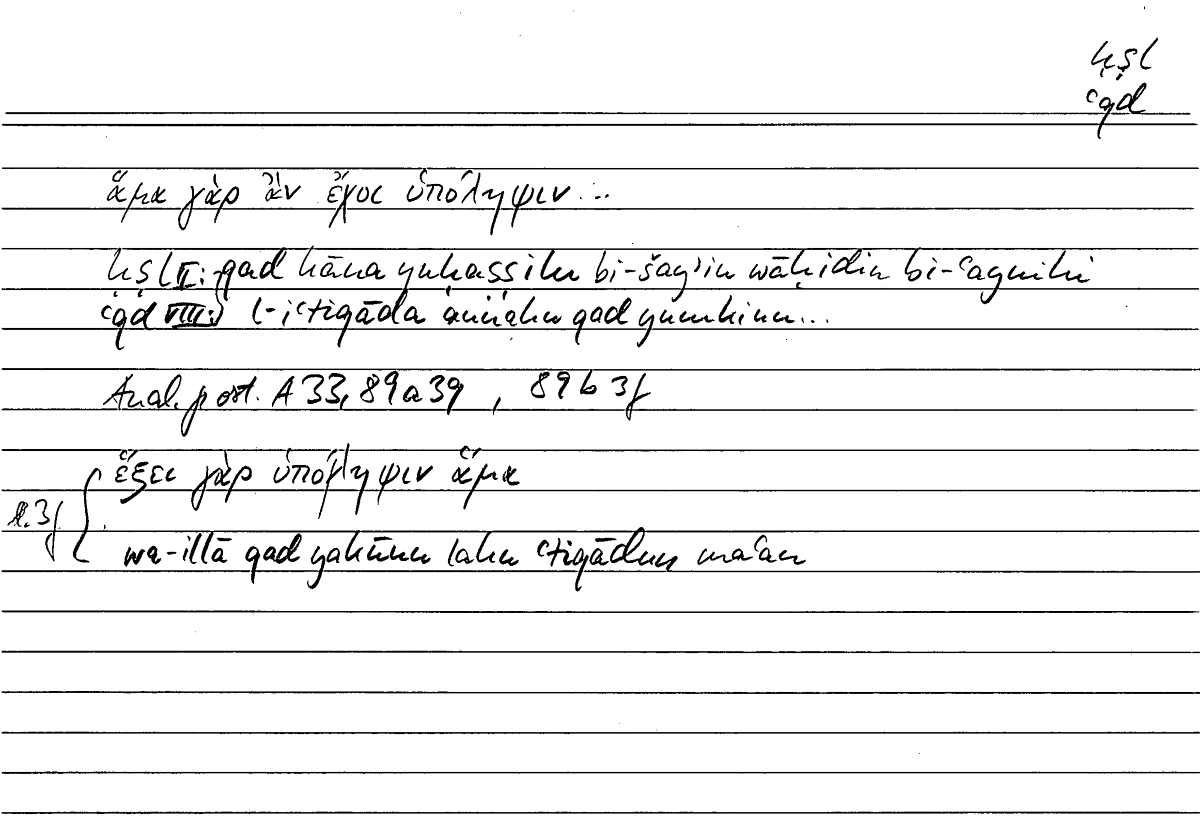 ḥṣl
ʿqd
ἅμα γὰρ ἂν ἔχοι ὑπόληψιν...
ḥṣl II: qad kāna yuḥaṣṣilu bi-šayʾin wāḥidin bi-ʿaynihi
ʿqd VIII: l-iʿtiqāda annahu qad yumkinu...
Anal. post. A 33, 89a39, 89b3f
ἕξει γὰρ ὑπόληψιν ἅμα
3f
wa-illā qad yakūnu lahu ʿtiqādun maʿan